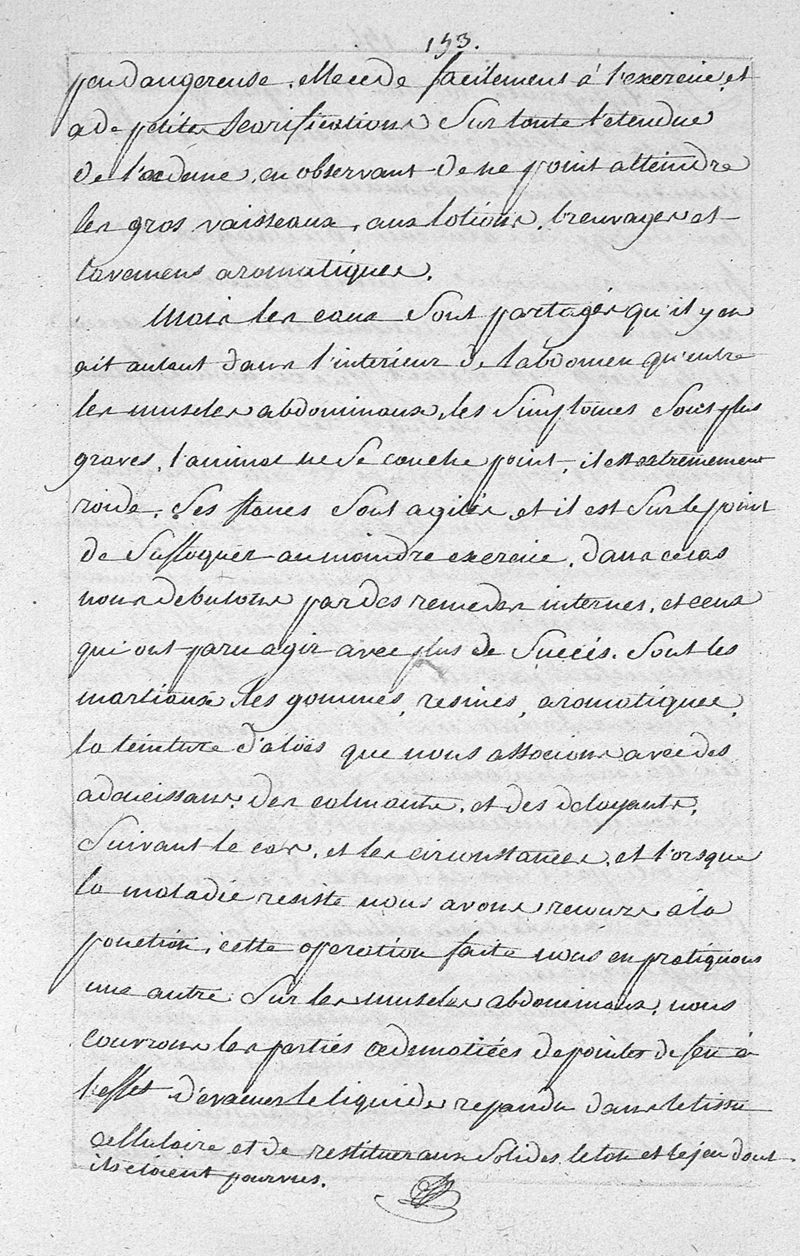 153.
peu dangereuse, elle cede facilement à l'exercice, et
a de petites scarifications sur toute l'etendue
de l'œdeme, en observant de ne point atteindre
les gros vaisseaux, aux lotions, breuvages et
lavemens aromatiques.
Mais les eaux sont partages qu'il y en
ait autant dans l'interieur de l'abdomen qu'entre
les muscles abdominaux, les simptomes sont plus
graves, l'animal ne se couche point, il est extremement
roide, ses flancs sont agités, et il est sur le point
de suffoquer au moindre exercice, dans ce cas
nous debutons par des remedes internes, et ceux
qui ont paru agir avec plus de succés, sont les
martiaux, les gommes, resines, aromatiques,
la teinture d'aloës que nous associons avec des
adoucissans, des calmants, et des delayants,
suivant le cas, et les circonstances, et lorsque
la maladie resiste nous avons recours à la
ponction, cette operation faite nous en pratiquons
une autre sur les muscles abdominaux, nous
couvrons les parties œdematiées de pointes de feu à
l'effet d'évacuer le liquide repandu dans le tissu
cellulaire et de restituer aux solides le ton et le jeu dont
ils etoient pourvus.